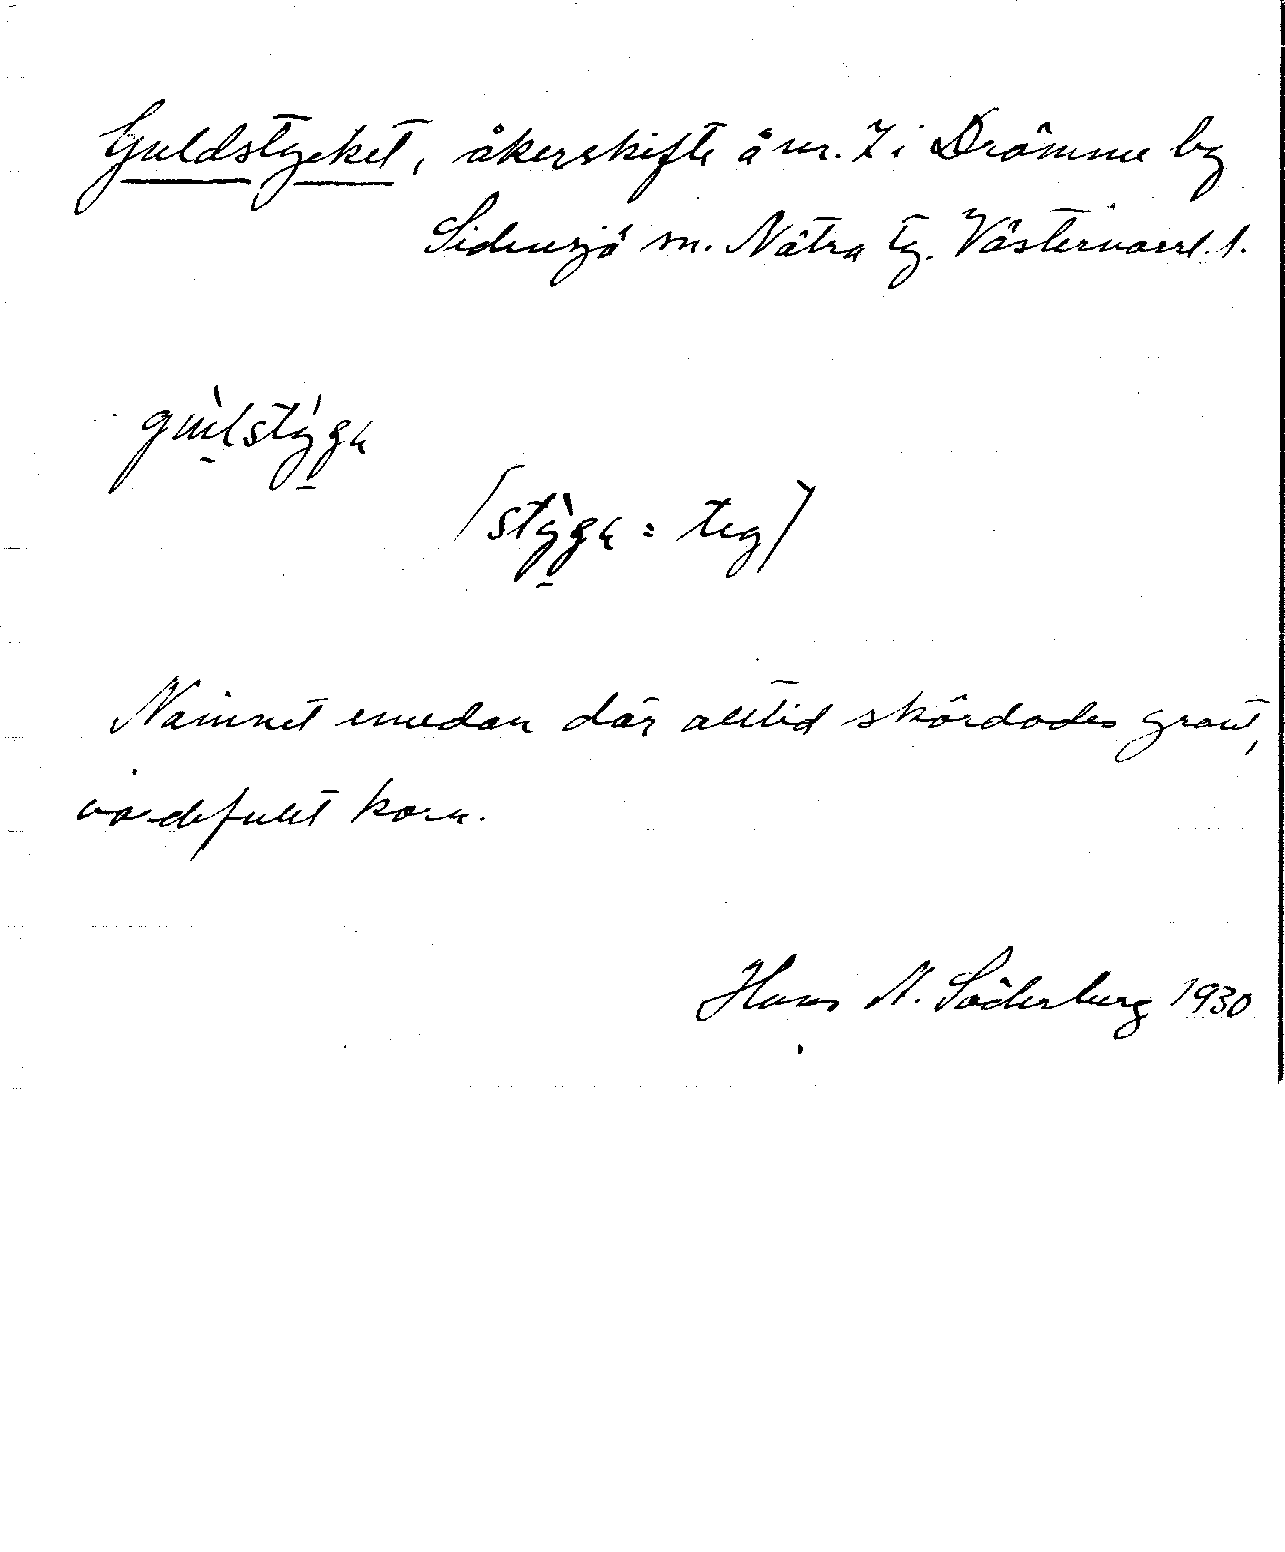 Guldstycket, åkerskifte å nr. 7 i Drömme by
Sidensjö sn. Nätra tg. Västernorrl. l.
(stỳgạ = teg)
Namnet emedan där alltid skördades grant,
värdefullt korn.
Hans N. Söderberg 1930